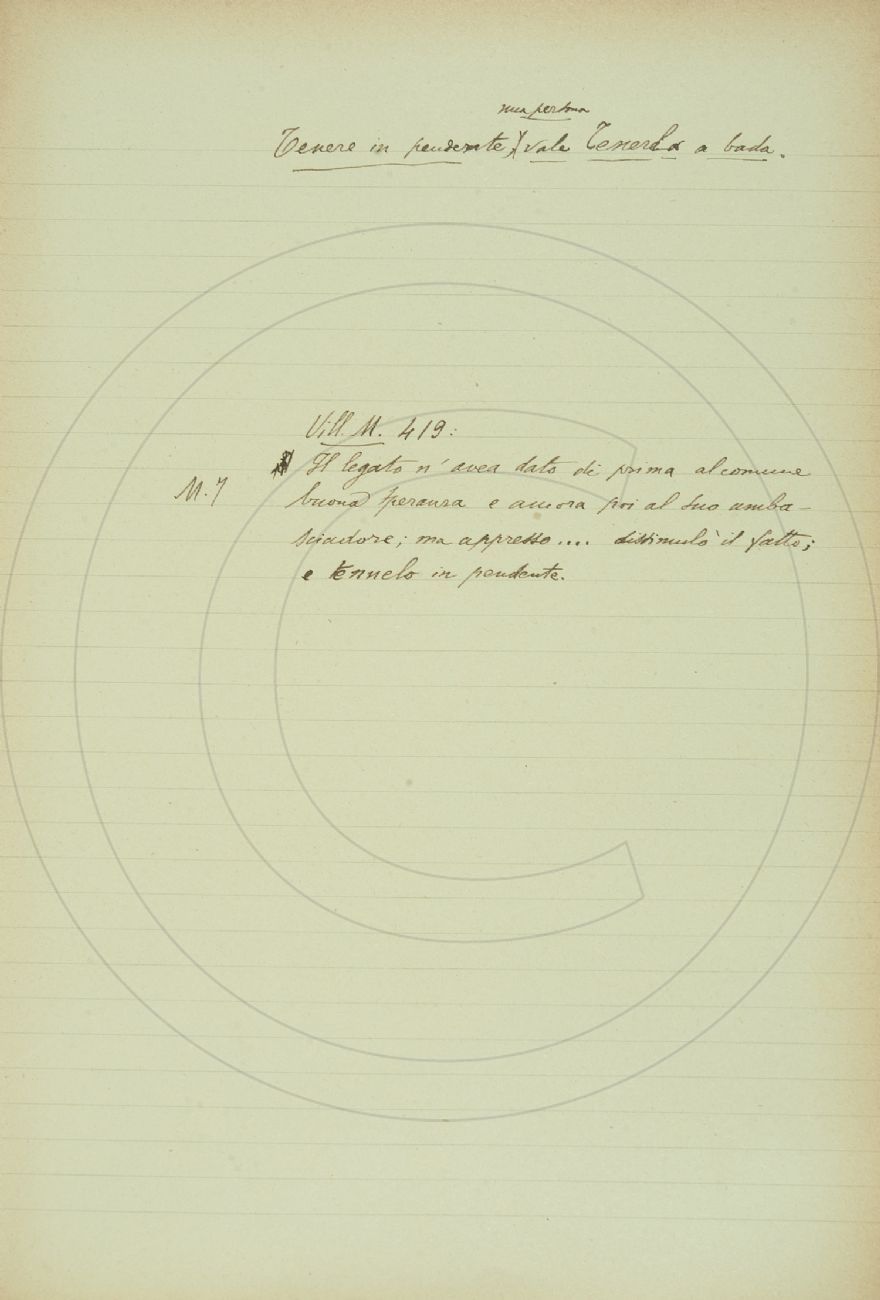 una persona
Tenere in pendente, vale Tenerla a bada.
Vill. M. 419:
Il legato n'avea dato di prima al comune
M. 7
buona speranza e ancora poi al suo amba-
sciadore; ma appresso.... dissimulò il fatto;
e tennelo in pendente.